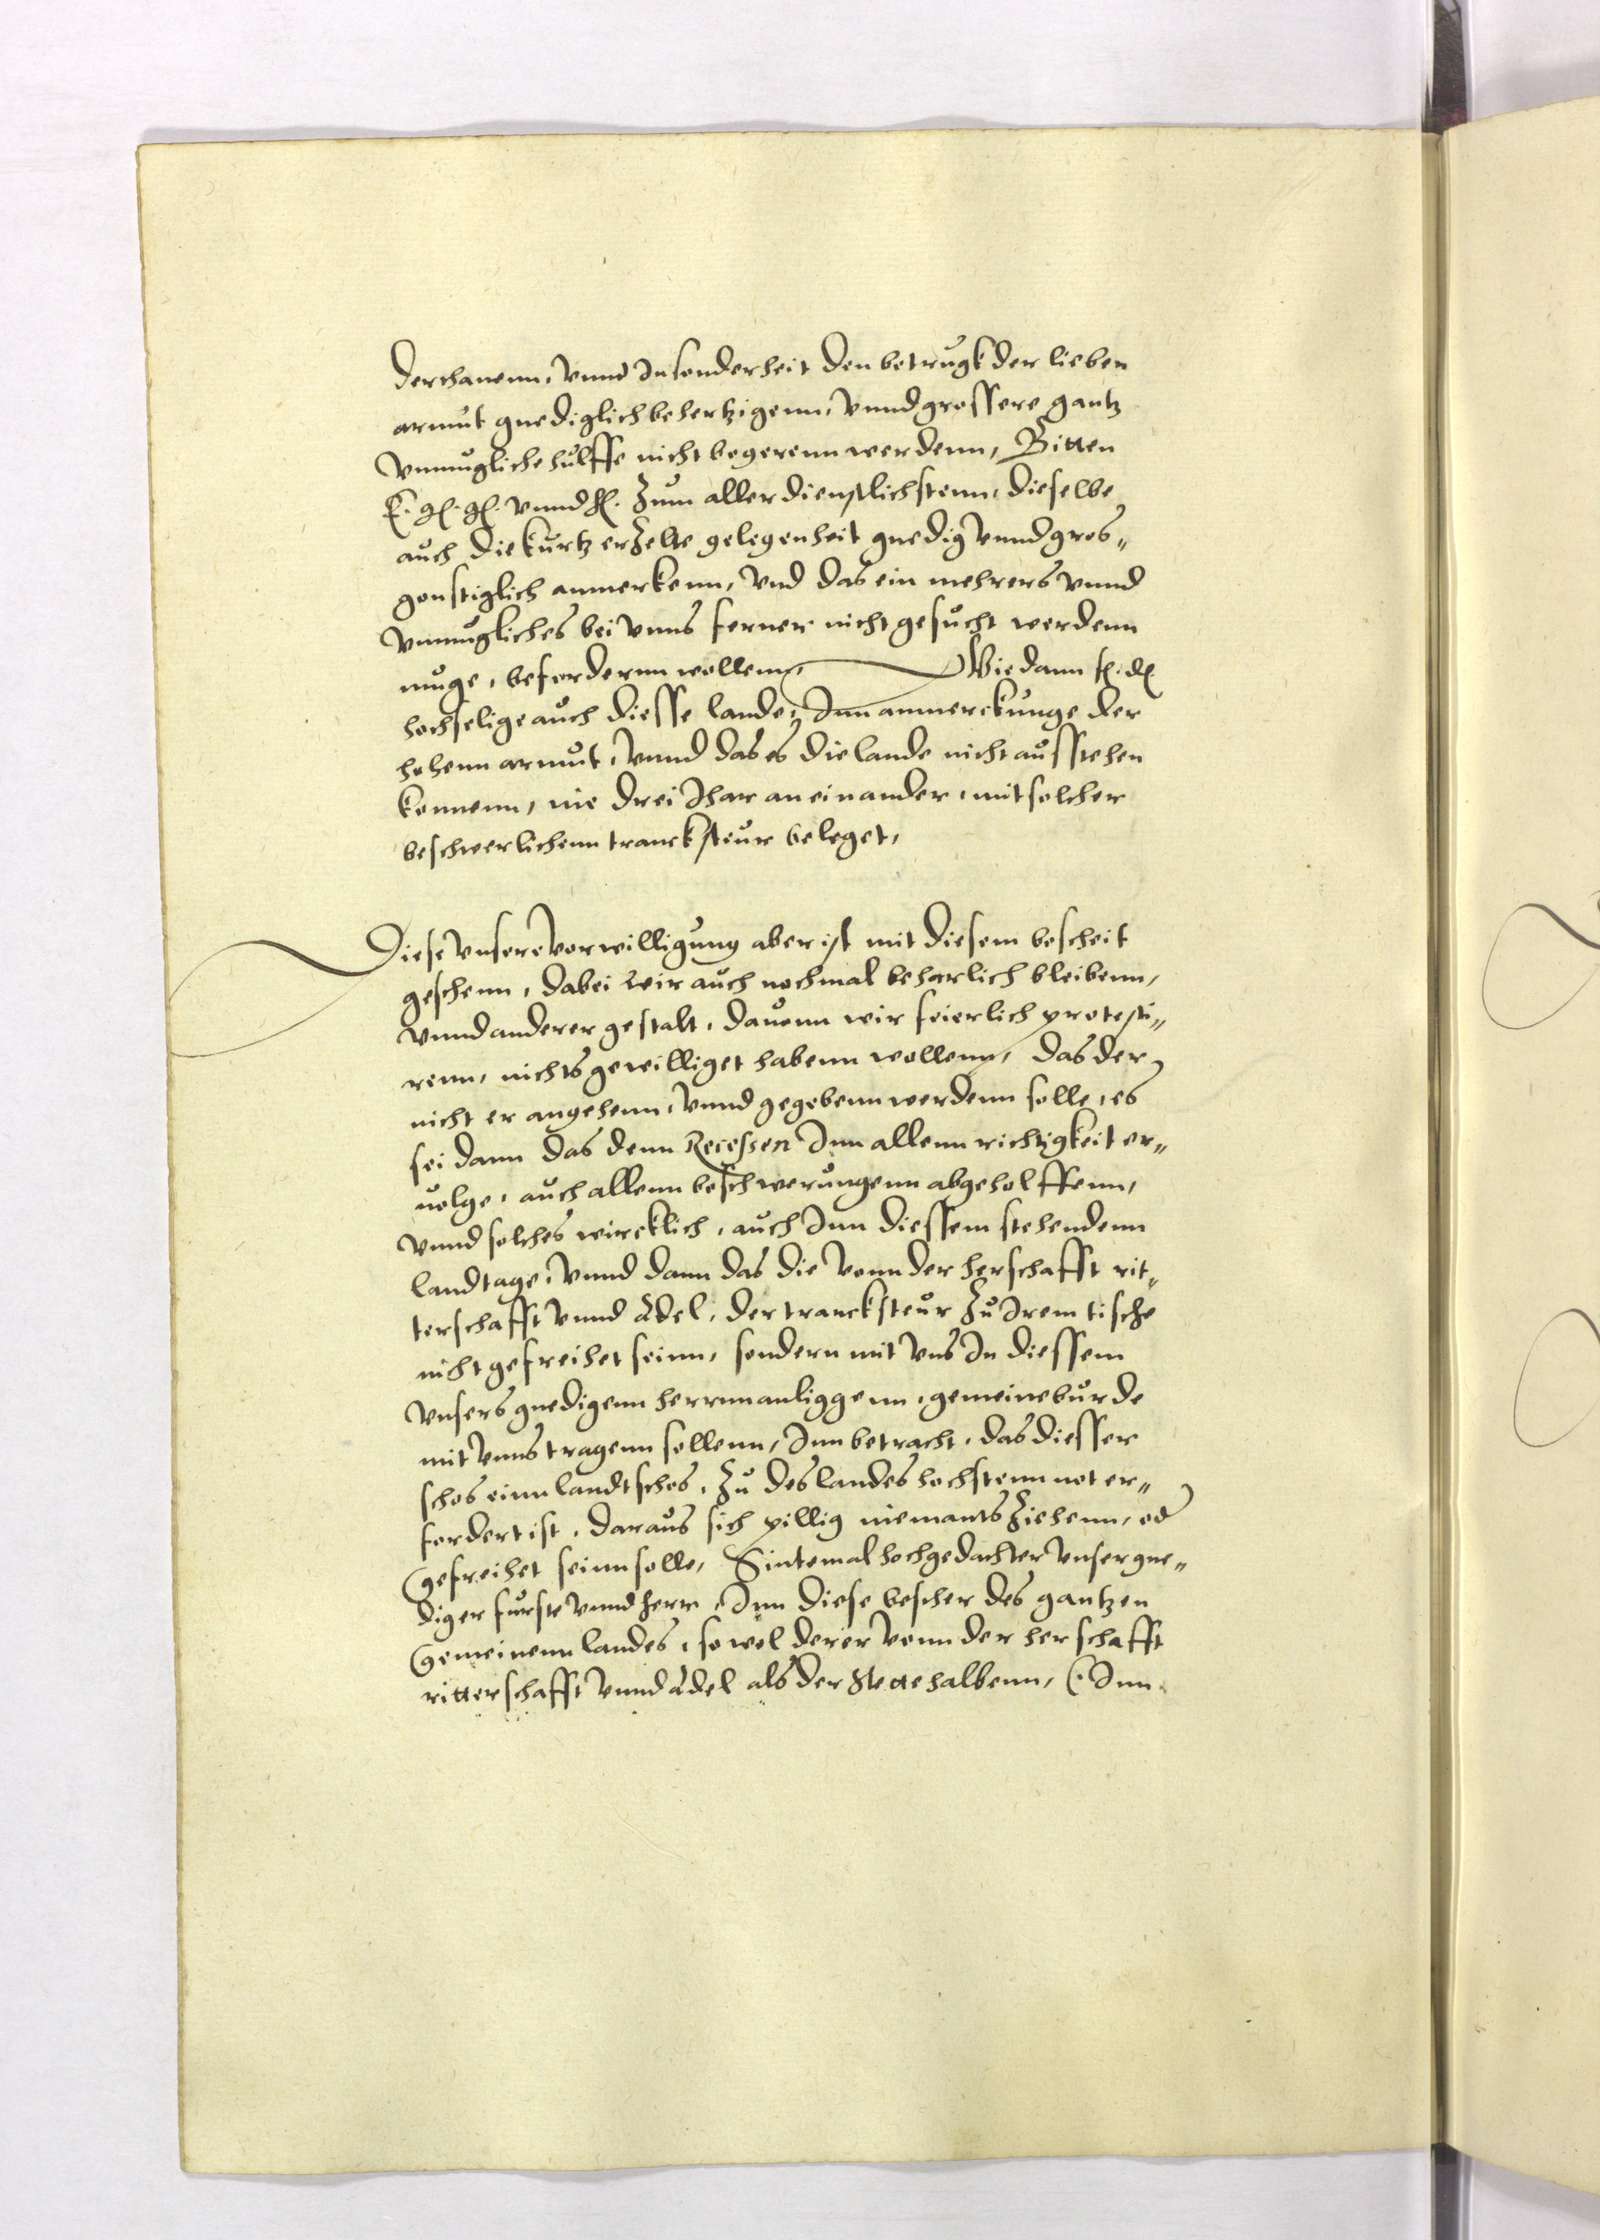 derchauenn, vnnd Insonderheit den betrugk der lieben
armut gnediglich behertzigenn, vnnd grossere gantz
vnmugliche hulffe nicht begerenn werdenn, Bitten
E. g. g. vnnd g. zum aller dienstlichstenn, dieselbe
auch die kurtz erzelte gelegenheit gnedig vnnd gros„
gonstiglich anmerkenn, vnd das ein mehrers vnnd
vnmugliches bei vnns ferner nicht gesucht werdenn
muge, befordernn wollenn, Wie dann f. d.
hochselige auch diesse lande, Inn anmerckunge der
hohenn armut, vnnd das es die lande nicht ausstehen
konnenn, nie drei Ihar an einander, mit solcher
beschwerlichenn trancksteur beleget,
Diese vnsere vorwilligung aber ist mit diesem bescheit
geschenn, dabei wir auch nochmal beharlich bleibenn,
vnnd anderer gestalt, dauonn wir feierlich protesti„
renn, nichts gewilliget habenn wollenn, das der
nicht er angehenn, vnnd gegebenn werdenn solle, es
sei dann das denn Recessen Inn allenn richtigkeit er„
uolge, auch allenn beschwerungenn abgeholffenn,
vnnd solches wircklich, auch Inn diessem stehendenn
landtage, vnnd dann das die vonn der herschafft rit„
terschafft vnnd Adel, der trancksteur zu Irem tische
nicht gefreihet seinn, sondern mit vns In diessem
vnsers gnedigenn herrnn anliggenn, gemeine burde
mit vnns tragenn sollenn, Inn betracht, das diesser
schos einn landtschos, zu des landes hochstenn not er„
fordert ist, daraus sich pillig niemants ziehenn, od
gefreihet seinn solle, Sintemal hochgedachter vnser gne„
diger furste vnnd herr, Inn diese bescher des gantzen
gemeinenn landes, so wol derer vonn der herschafft
ritterschafft vnnd Adel als der Stette halbenn, (Inn